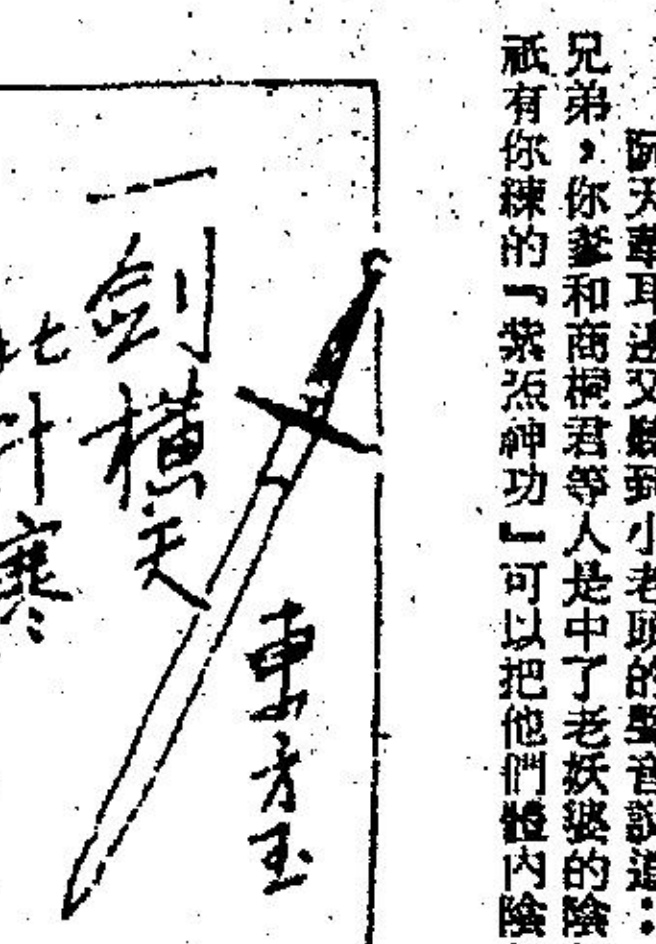 阮天華耳邊又聽到小老頭的聲音說道：
兄弟，你爹和商桐君等人是中了老妖婆的陰
祇有你練的『紫炁神功』可以把他們體內陰
東方玉
一劍橫天
北斗寒